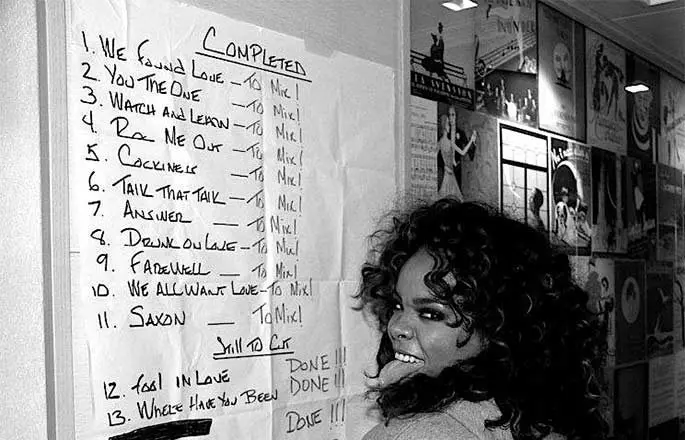 COMPLETED
1. WE FOUND LOVE – TO MIX!
2. YOU THE ONE – TO MIX!
3. WATCH AND LEARN – TO MIX!
4. ROC ME OUT – TO MIX!
5. COCKINESS – TO MIX!
6. TALK THAT TALK – TO MIX!
7. ANSWER – TO MIX!
8. DRUNK ON LOVE – TO MIX!
9. FAREWELL – TO MIX!
10. WE ALL WANT LOVE – TO MIX!
11. SAXON – TO MIX!
STILL TO CUT
12. FOOL IN LOVE DONE!!!
13. WHERE HAVE YOU BEEN DONE!!!
DONE!!!